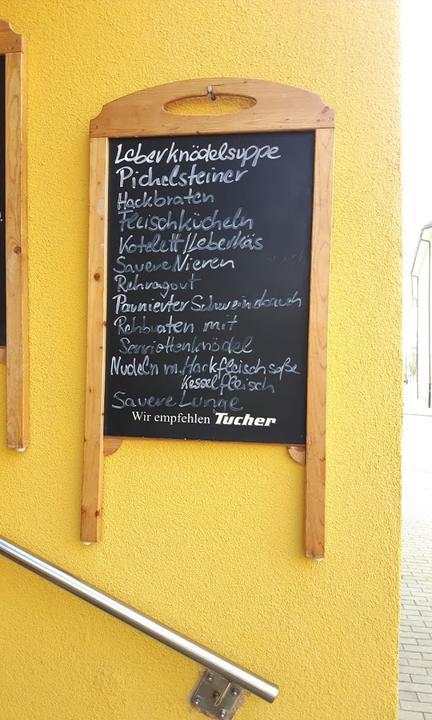 Leberknödelsuppe
Pichelsteiner
Hackbraten
Fleischkücheln
Kotelett/Leberkäs
Sauere Nieren
Rehragout
Paunierter Schweinebauch
Rehbraten mit
Serviottenknödel
Nudeln m. Hackfleischsoße
Kesselfleisch
Sauere Lunge
Wir empfehlen Tucher